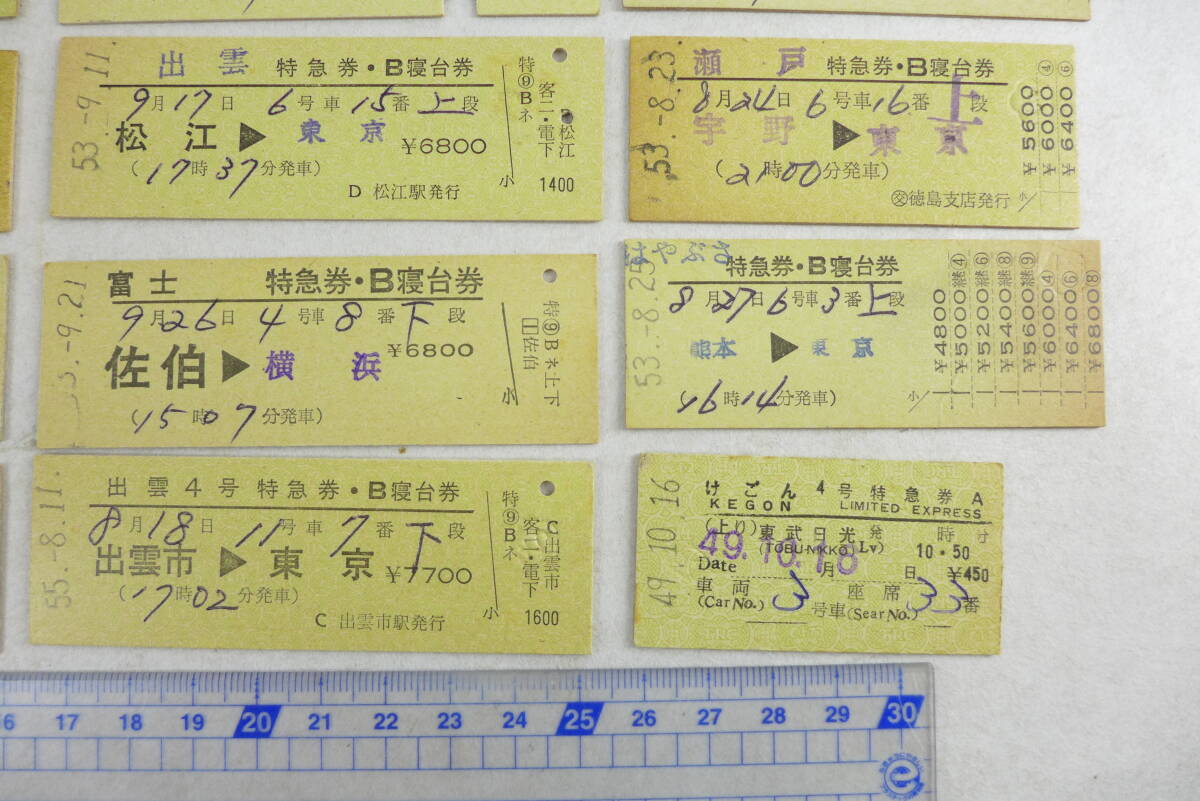 53.-9.11
出雲 特急券・B寝台券
9月17日 6号車15番上段
松江▶東京 ¥6800
(17時37分発車)
D 松江駅発行
特⑨Bネ
客ニ・電下
小 1400
松江
53.-8.23.
瀬戸 特急券・B寝台券
8月24日 6号車16番上段
宇野▶東京
(21時00分発車)
㊋徳島支店発行
小
¥5600
¥6000④
¥6400⑥
3.-9.21
富士 特急券・B寝台券
9月26日 4号車8番下段
佐伯▶横浜 ¥6800
(15時07分発車)
特⑨Bネ上下
佐伯
小
53.-8.25
はやぶさ
特急券・B寝台券
8月27日6号車3番上段
熊本▶東京
(16時14分発車)
小
¥4800
¥5000継④
¥5200継⑥
¥5400継⑧
¥5600継⑨
¥6000④
¥6400⑥
¥6800⑧
55.-8.11.
出雲4号 特急券・B寝台券
8月18日 11号車7番下段
出雲市▶東京 ¥7700
(17時02分発車)
C 出雲市駅発行
特⑨Bネ
客ニ・電下
小 1600
C出雲市
49.10.16
けごん 4号特急券A
KEGON LIMITED EXPRESS
(上り)東武日光発 時分
(TOBU-NIKKO Lv) 10・50
49.10.18
Date 月 日 ¥450
車両 3 座席 33番
(Car No.) 号車(Sear No.)
16 17 18 19 20 21 22 23 24 25 26 27 28 29 30